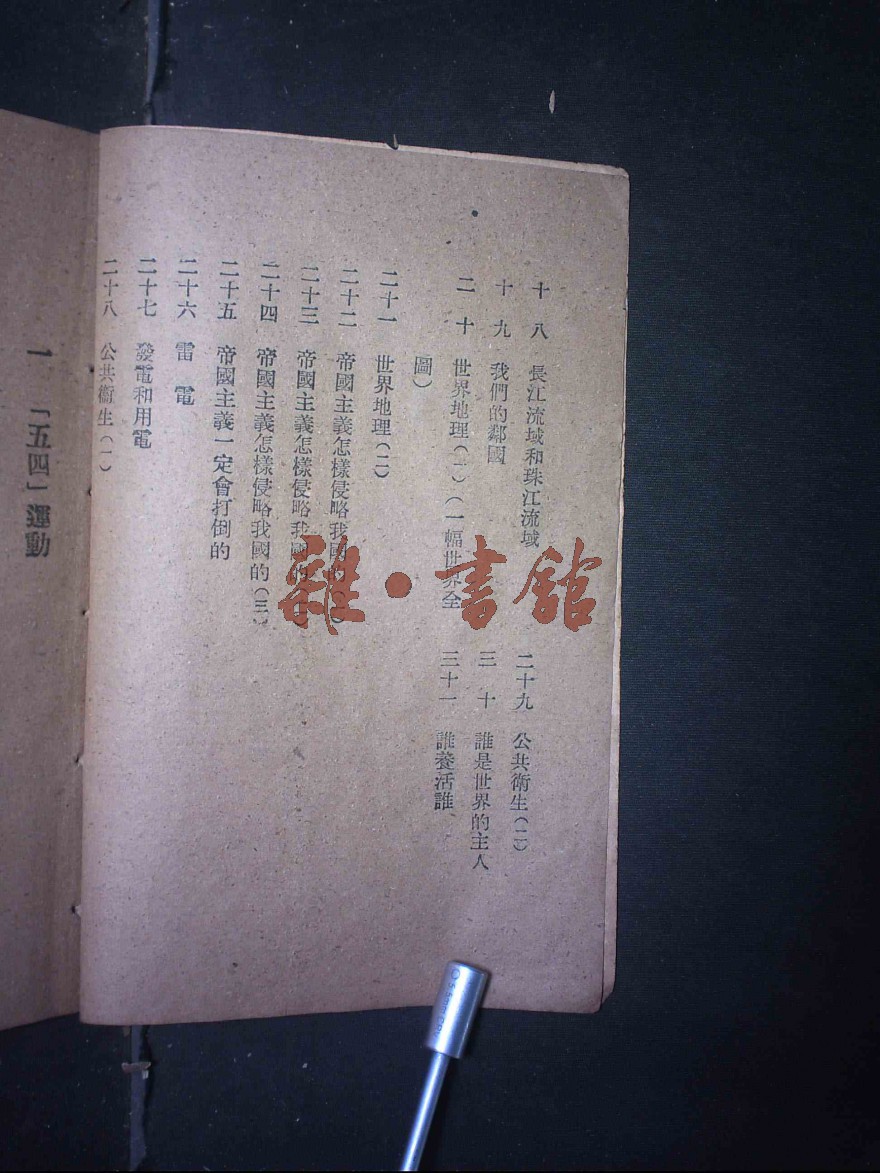 十八 長江流域和珠江流域
十九 我們的鄰國
二十 世界地理(一)(一幅世界全
圖)
二十一 世界地理(二)
二十二 帝國主義怎樣侵略我國的(一)
二十三 帝國主義怎樣侵略我國的(二)
二十四 帝國主義怎樣侵略我國的(三)
二十五 帝國主義一定會打倒的
二十六 雷電
二十七 發電和用電
二十八 公共衞生(一)
二十九 公共衞生(二)
三十 誰是世界的主人
三十一 誰養活誰
一 「五四」運動
雜·書館